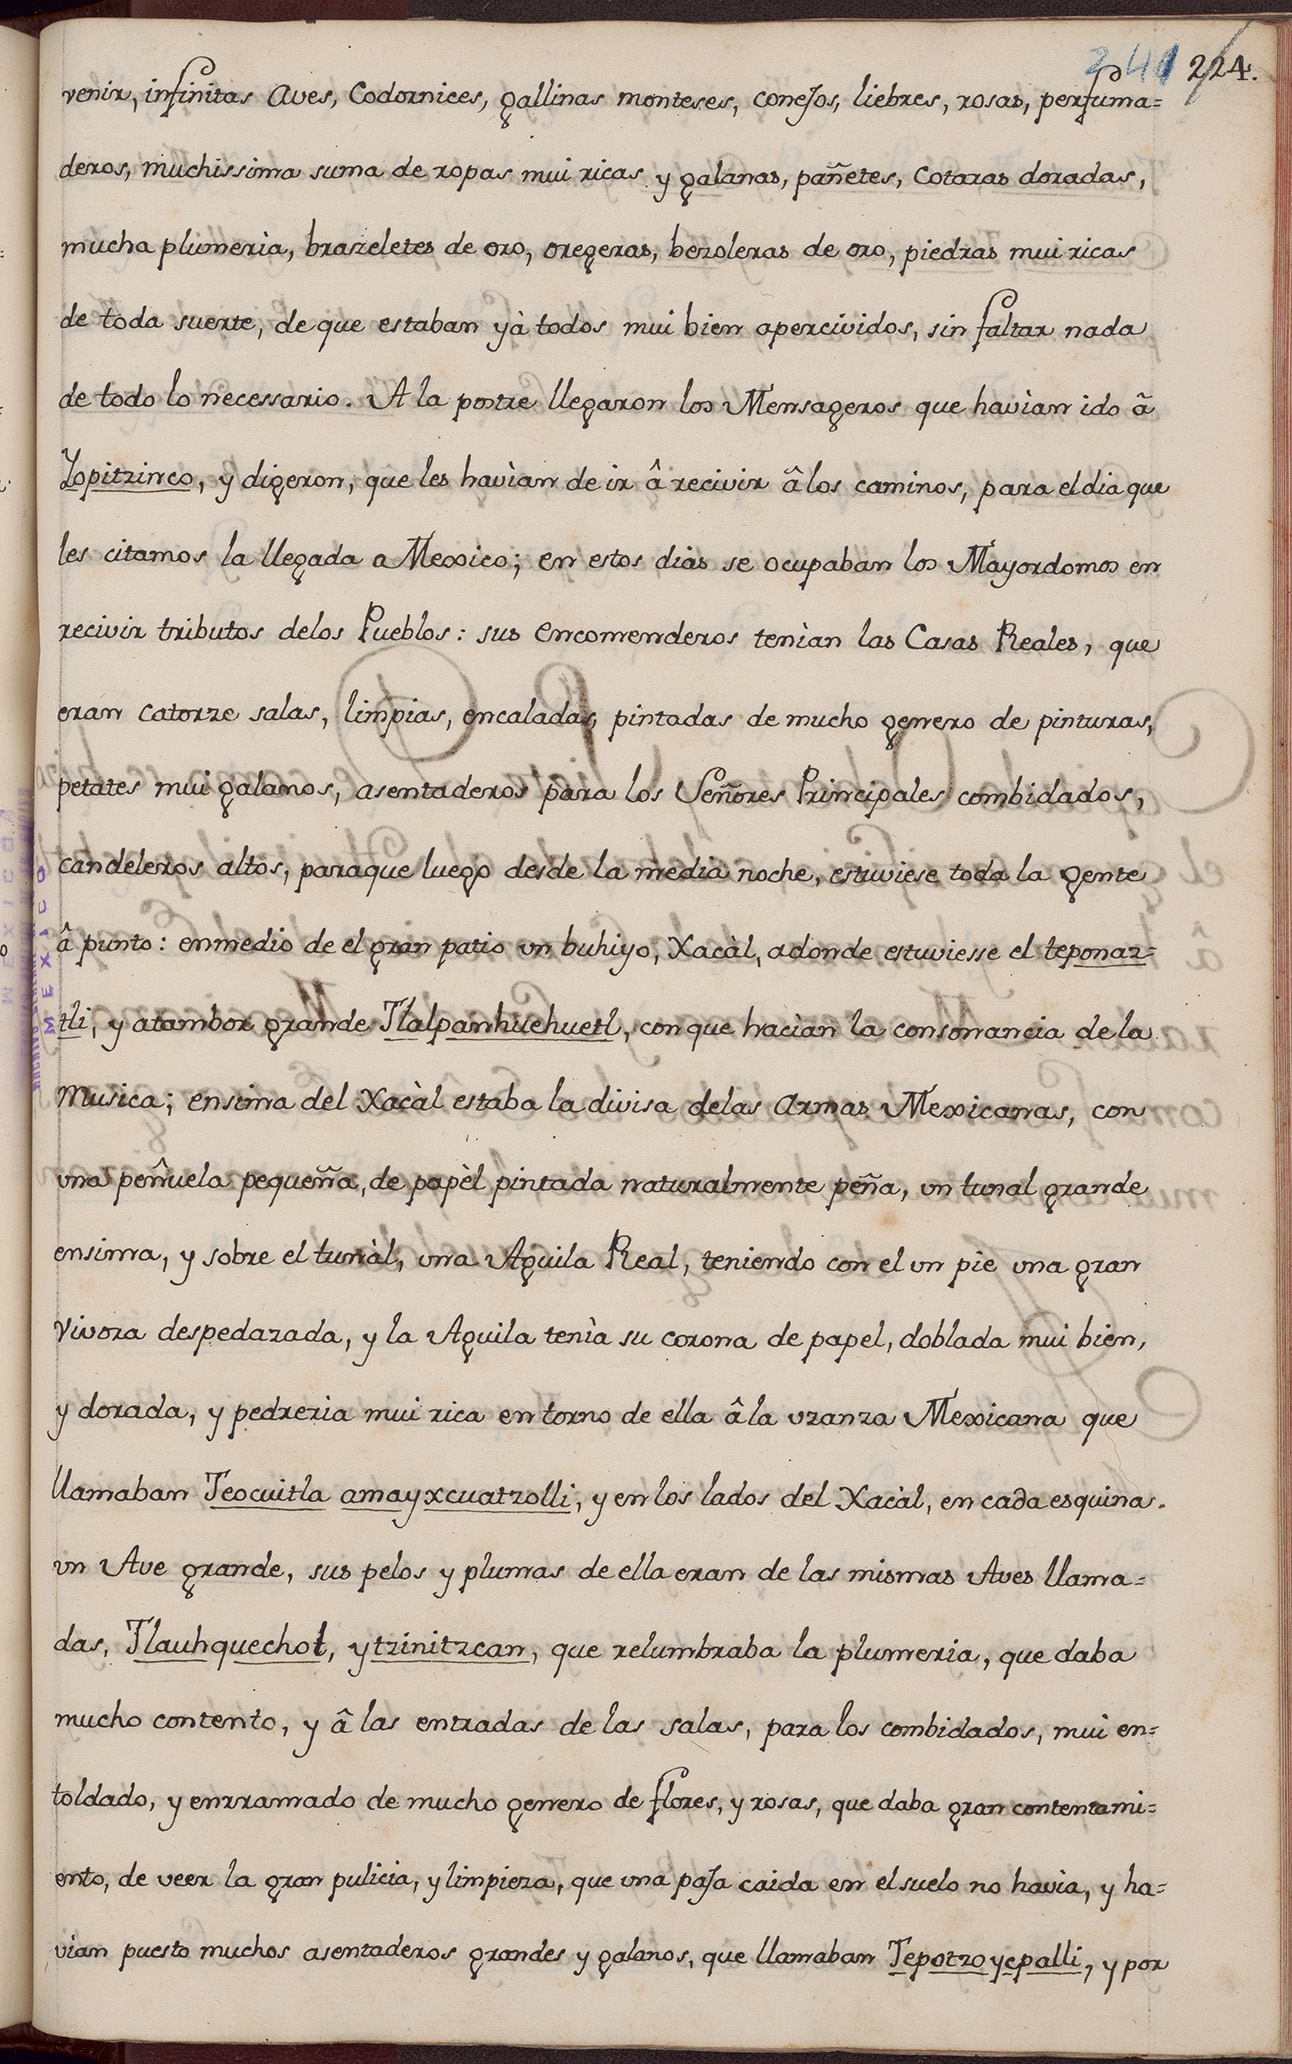 241 224.
venir, infinitas Aves, Codornices, gallinas monteses, coneJos, liebres, rosas, perfuma=
deros, muchissima suma de ropas mui ricas y galanas, pañetes, Cotaras doradas,
mucha plumerìa, brazeletes de oro, oregeras, bezoleras de oro, piedras mui ricas
de toda suerte, de que estaban yà todos mui bien apercividos, sin faltar nada
de todo lo necessario. A la postre llegaron los Mensageros que havìan ido â
Yopitzinco, y digeron, que les havìan de ir â recivir â los caminos, para el dia que
les citamos la llegada a Mexico; en estos dias se ocupaban los Mayordomos en
recivir tributos delos Pueblos: sus encomenderos tenìan las Casas Reales, que
eran catorze salas, limpias, encaladas, pintadas de mucho genero de pinturas,
petates mui galanos, asentaderos para los Señores Principales combidados,
candeleros altos, paraque luego desde la media noche, estuviese toda la gente
â punto: enmedio de el gran patio vn buhiyo, Xacàl, adonde estuviesse el teponaz=
tli, y atambor grande Tlalpanhuehuetl, con que hacìan la consonancia de la
Musica; ensima del Xacàl estaba la divisa delas armas Mexicanas, con
vna peñuela pequeña, de papèl pintada naturalmente peña, vn tunal grande
ensima, y sobre el tunàl, vna Aguila Real, teniendo con el vn pie vna gran
Vivora despedazada, y la Aguila tenìa su corona de papel, doblada mui bien,
y dorada, y pedreria mui rica en torno de ella â la vzanza Mexicana que
llamaban Teocuitla amayxcuatzolli, y en los lados del Xacàl, en cada esquina.
vn Ave grande, sus pelos y plumas de ella eran de las mismas Aves llama=
das, Tlauhquechol, y tzinitzcan, que relumbraba la plumeria, que daba
mucho contento, y â las entradas de las salas, para los combidados, mui en=
toldado, y enrramado de mucho genero de flores, y rosas, que daba gran contentami=
ento, de veer la gran pulicia, y limpieza, que vna paJa caida en el suelo no havia, y ha=
vian puesto muchos asentaderos grandes y galanos, que llamaban Tepotzoyepalli, y por
MEXICO